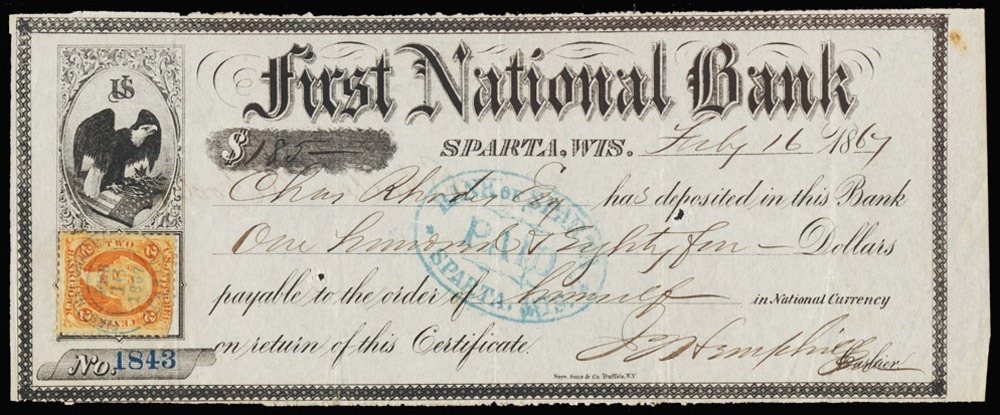 US
First National Bank
$ 185 —
SPARTA, WIS. Feby 16 1867
Chas Rhodes Esq has deposited in this Bank
One hundred & Eighty five — Dollars
payable to the order of himself in National Currency
on return of this Certificate.
Hemphill Cashier.
No. 1843
Sage, Sons & Co. Buffalo, N.Y.
BANK OF SPARTA
PAID
SPARTA, WIS.
TWO
CENTS
2
2